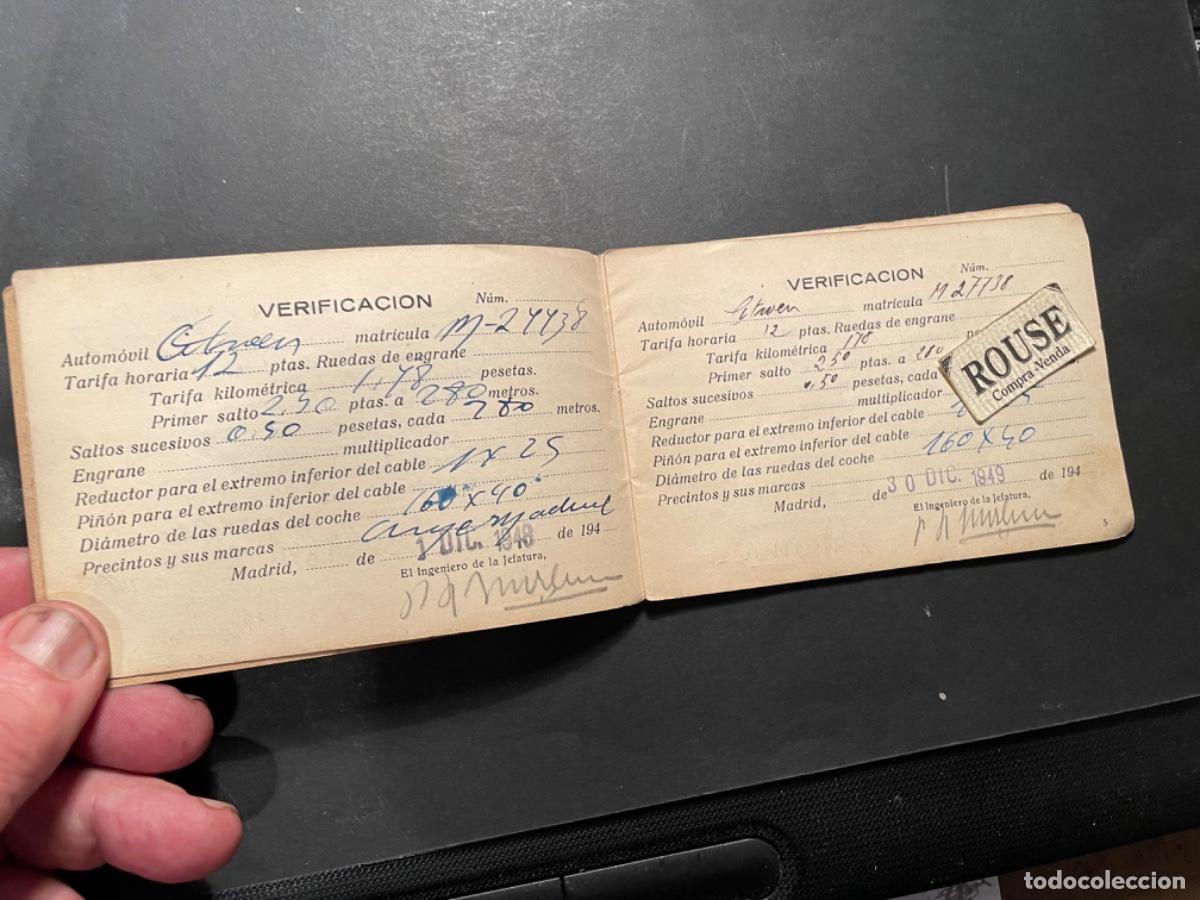 VERIFICACION Núm.
Automóvil Citroen matrícula M-27738
Tarifa horaria 12 ptas. Ruedas de engrane
Tarifa kilométrica 1,78 pesetas.
Primer salto 2,50 ptas. a 280 metros.
Saltos sucesivos 0,50 pesetas, cada 280 metros.
Engrane multiplicador
Reductor para el extremo inferior del cable 1 x 25
Piñón para el extremo inferior del cable
Diámetro de las ruedas del coche 160 x 40
Precintos y sus marcas
Madrid, de DIC. 1949 de 194
El Ingeniero de la Jefatura,
VERIFICACION Núm.
Automóvil Citroen matrícula M 27738
Tarifa horaria 12 ptas. Ruedas de engrane
Tarifa kilométrica 178
Primer salto 2,50 ptas. a 280
Saltos sucesivos 0,50 pesetas, cada
Engrane multiplicador
Reductor para el extremo inferior del cable
Piñón para el extremo inferior del cable
Diámetro de las ruedas del coche 160 x 40
Precintos y sus marcas
Madrid, de 30 DIC. 1949 de 194
El Ingeniero de la Jefatura,
5
ROUSE
Compra-Venda
todocoleccion